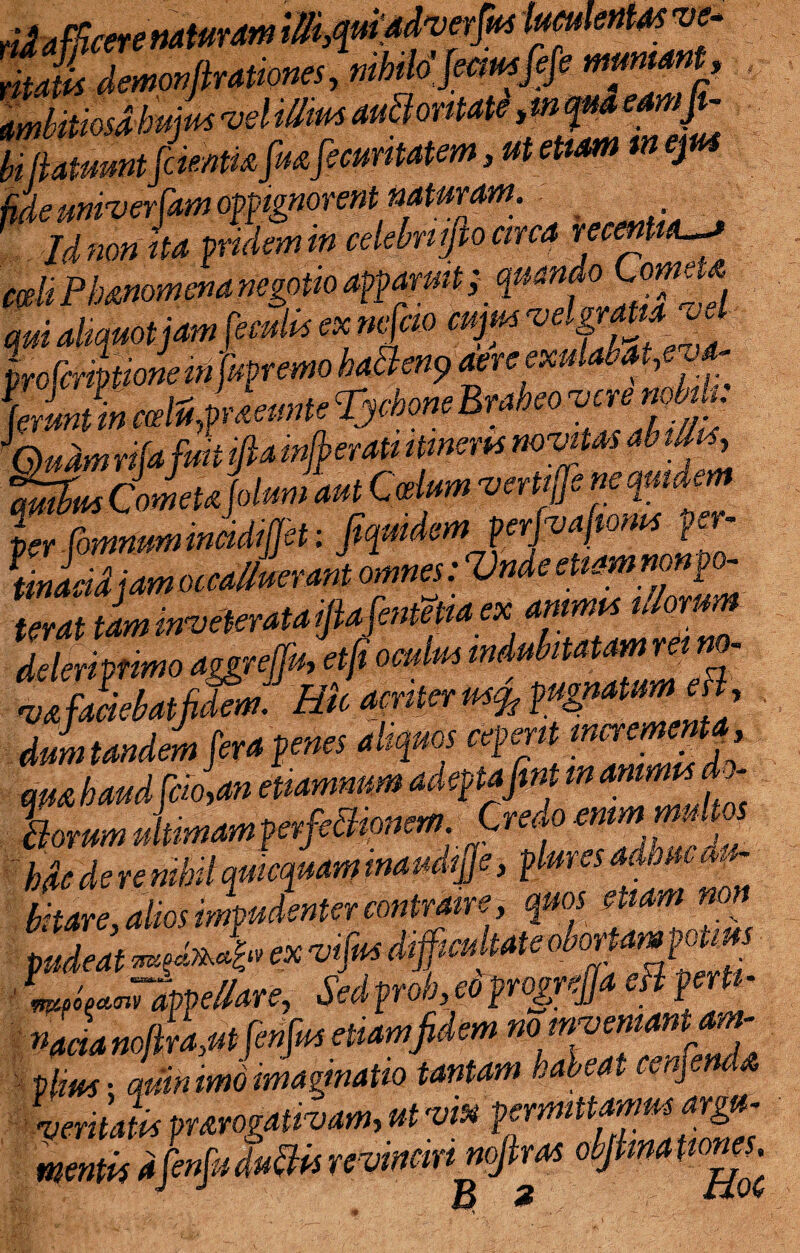 riâ afficere naturam illi, qui adversus luculentas ve-
ritatis demonstrationes, nihilo secius sese muniant,
ambitiosâ hujus vel illius auctoritate, in quâ eam si-
bi statuunt scientiæ suæ securitatem, ut etiam in ejus
fide universam oppignorent naturam.
Id non ita pridem in celebri isto circa recentia
cœli Phænomena negotio apparuit; quando Cometæ
qui aliquot jam seculis ex nescio cujus vel gratiâ vel
proscriptione in supremo hactenꝰ aëre exulabāt, eva-
serunt in cœlū, præeunte Tychone Braheo vere nobili:
Quàm risa fuit ista insperati itineris novitas ab illis,
quibus Cometæ solum aut Cœlum vertisse ne quidem
per somnum incidisset: siquidem persvasionis per-
tinaciâ jam occalluerant omnes: Unde etiam non po-
terat tam inveterata ista sentētia ex animis illorum
deleri primo aggressu, etsi oculus indubitatam rei no-
væ faciebat fidem. Hîc acriter usq; pugnatum est,
dum tandem sera penes aliquos ceperit incrementa,
quæ haud scio, an etiamnum adepta sint in animis do-
ctorum ultimam perfectionem. Credo enim multos
hâc de re nihil quicquam inaudisse, plures adhuc du-
bitare, alios impudenter contraire, quos etiam non
pudeat παράλλαξιν ex visus difficultate obortam potius
παρόρασιν appellare, Sed proh, eò progressa est perti-
nacia nostra, ut sensus etiam fidem nō inveniant am-
plius; quin imò imaginatio tantam habeat censendæ
veritatis prærogativam, ut vix permittamus argu-
mentis à sensu ductis revinciri nostras obstinationes.
B 2 Hoc